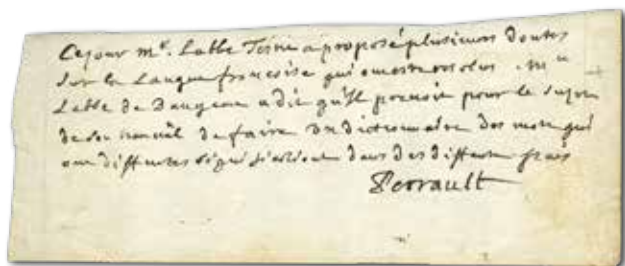 Ce jour mr. Labbé Testu a proposé plusieurs doutes
sur la Langue françoise qui ont esté resolus. mr
Labbé de Dangeau a dit qu'il prenoit pour le sujet
de son travail de faire un dictionnaire des mots qui
ont differentes significations dans des differentes
Perrault